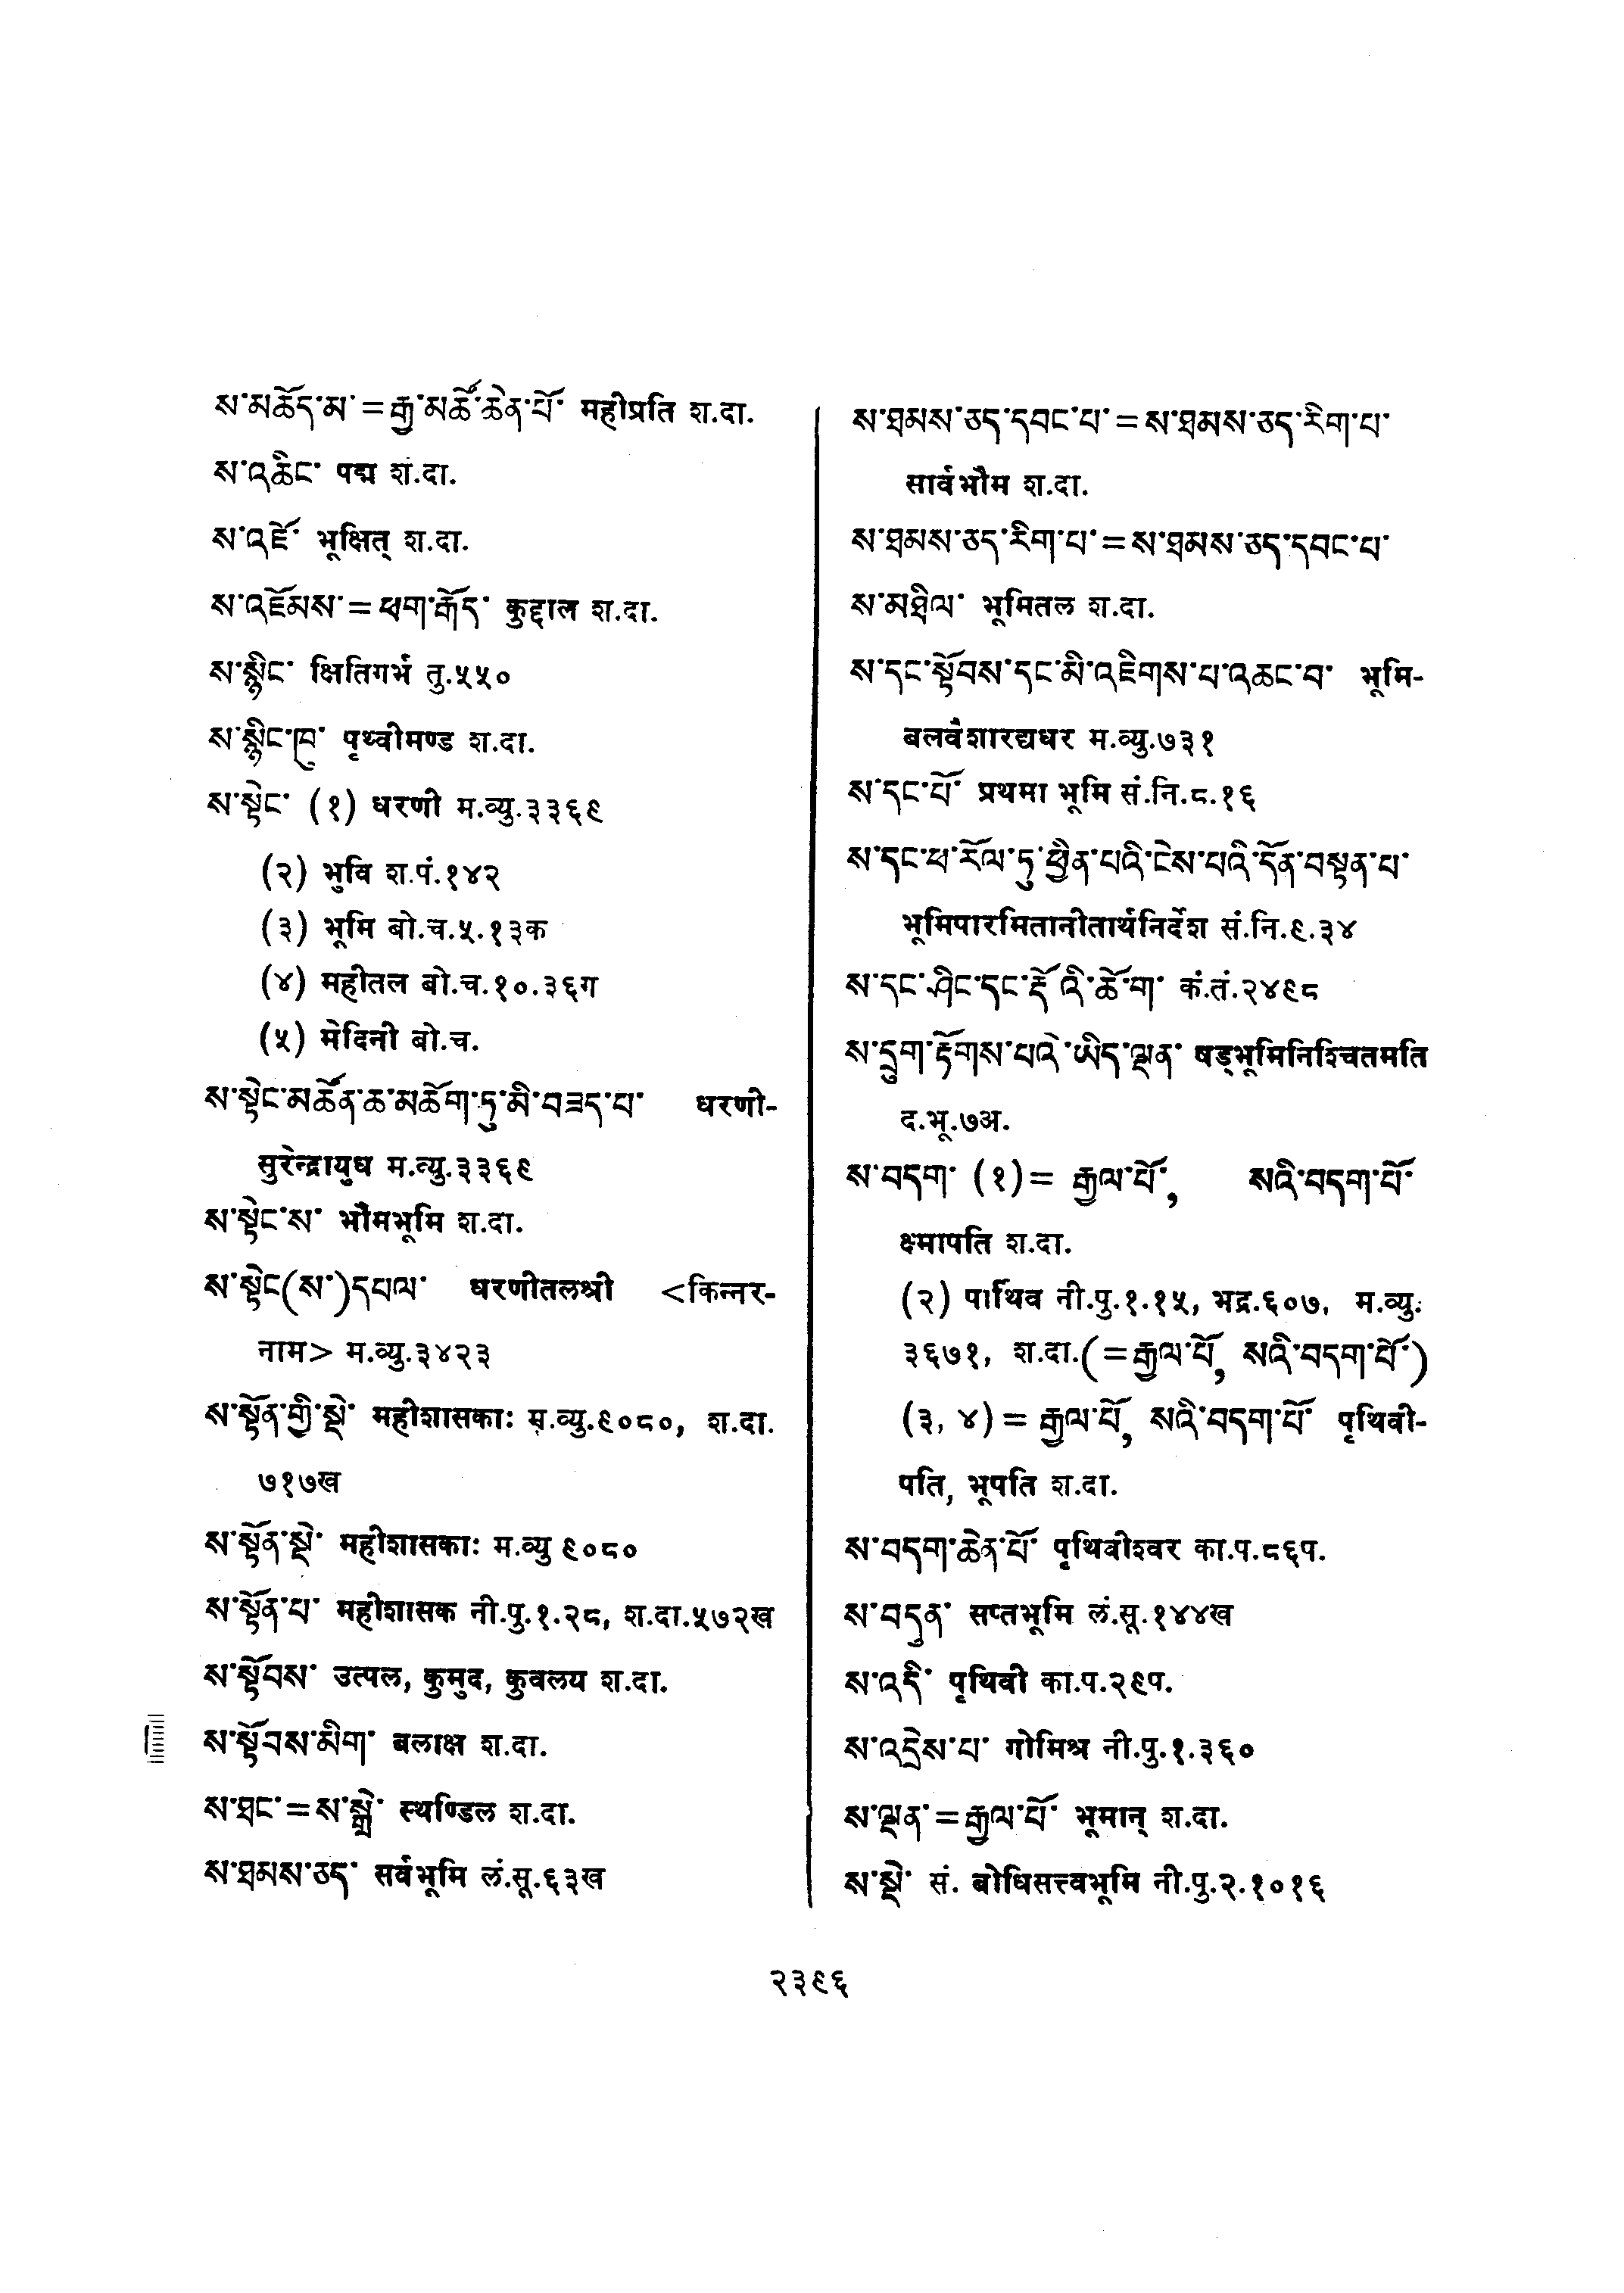 ས་མཆོད་མ་=རྒྱ་མཚོ་ཆེན་པོ་ महीप्रति श.दा.
ས་འཆིང་ पद्म श.दा.
ས་འཛོ་ भूक्षित् श.दा.
ས་འཛོམས་=ཕག་རྒོད་ कुद्दाल श.दा.
ས་སྙིང་ क्षितिगर्भ तु.५५०
ས་སྙིང་ཁུ་ पृथ्वीमण्ड श.दा.
ས་སྟེང་ (१) धरणी म.व्यु.३३६९
(२) भुवि श.पं.१४२
(३) भूमि बो.च.५.१३क
(४) महीतल बो.च.१०.३६ग
(५) मेदिनी बो.च.
ས་སྟེང་མཚོན་ཆ་མཆོག་ཏུ་མི་བཟད་པ་ धरणी-
सुरेन्द्रायुध म.व्यु.३३६९
ས་སྟེང་ས་ भौमभूमि श.दा.
ས་སྟེང(ས་)དཔལ་ धरणीतलश्री <किन्नर-
नाम> म.व्यु.३४२३
ས་སྟོན་གྱི་སྡེ་ महीशासकाः म.व्यु.९०८०, श.दा.
७१७ख
ས་སྟོན་སྡེ་ महीशासकाः म.व्यु ९०८०
ས་སྟོན་པ་ महीशासक नी.पु.१.२८, श.दा.५७२ख
ས་སྟོབས་ उत्पल, कुमुद, कुवलय श.दा.
ས་སྟོབས་མིག་ बलाक्ष श.दा.
ས་ཐང་=ས་སྒྲེ་ स्थण्डिल श.दा.
ས་ཐམས་ཅད་ सर्वभूमि लं.सू.६३ख
ས་ཐམས་ཅད་དབང་པ་=ས་ཐམས་ཅད་རིག་པ་
सार्वभौम श.दा.
ས་ཐམས་ཅད་རིག་པ་=ས་ཐམས་ཅད་དབང་པ་
ས་མཐིལ་ भूमितल श.दा.
ས་དང་སྟོབས་དང་མི་འཇིགས་པ་འཆང་བ་ भूमि-
बलवैशारद्यधर म.व्यु.७३१
ས་དང་པོ་ प्रथमा भूमि सं.नि.८.१६
ས་དང་ཕ་རོལ་ཏུ་ཕྱིན་པའི་ངེས་པའི་དོན་བསྟན་པ་
भूमिपारमितानीतार्थनिर्देश सं.नि.९.३४
ས་དང་ཤིང་དང་རྡོ་འི་ཆོ་ག་ कं.तं.२४९८
ས་དྲུག་རྟོགས་པའེ་ཡིད་ལྡན་ षड्भूमिनिश्चितमति
द.भू.७अ.
ས་བདག་ (१)= རྒྱལ་པོ་, སའི་བདག་པོ་
क्ष्मापति श.दा.
(२) पार्थिव नी.पु.१.१५, भद्र.६०७, म.व्यु.
३६७१, श.दा.(=རྒྱལ་པོ, སའི་བདག་པོ་)
(३, ४)= རྒྱལ་པོ, སའི་བདག་པོ་ पृथिवी-
पति, भूपति श.दा.
ས་བདག་ཆེན་པོ་ पृथिवीश्वर का.प.८६प.
ས་བདུན་ सप्तभूमि लं.सू.१४४ख
ས་འདི་ पृथिवी का.प.२९प.
ས་འདྲེས་པ་ गोमिश्र नी.पु.१.३६०
ས་ལྡན་=རྒྱལ་པོ་ भूमान् श.दा.
ས་སྡེ་ सं. बोधिसत्त्वभूमि नी.पु.२.१०१६
२३९६